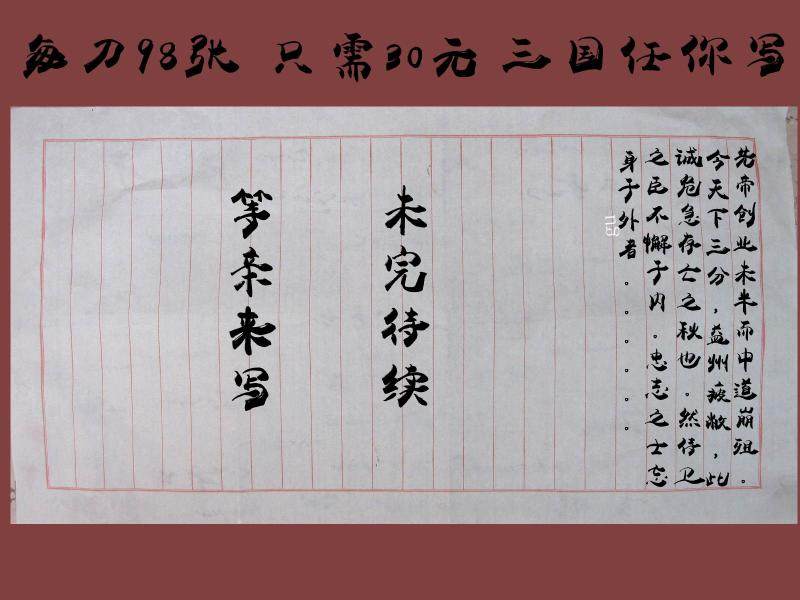 每刀98张 只需30元 三国任你写
先帝创业未半而中道崩殂。
今天下三分，益州疲敝，此
诚危急存亡之秋也。然侍卫
之臣不懈于内。忠志之士忘
身于外者。。。。。。
未完待续
等亲来写